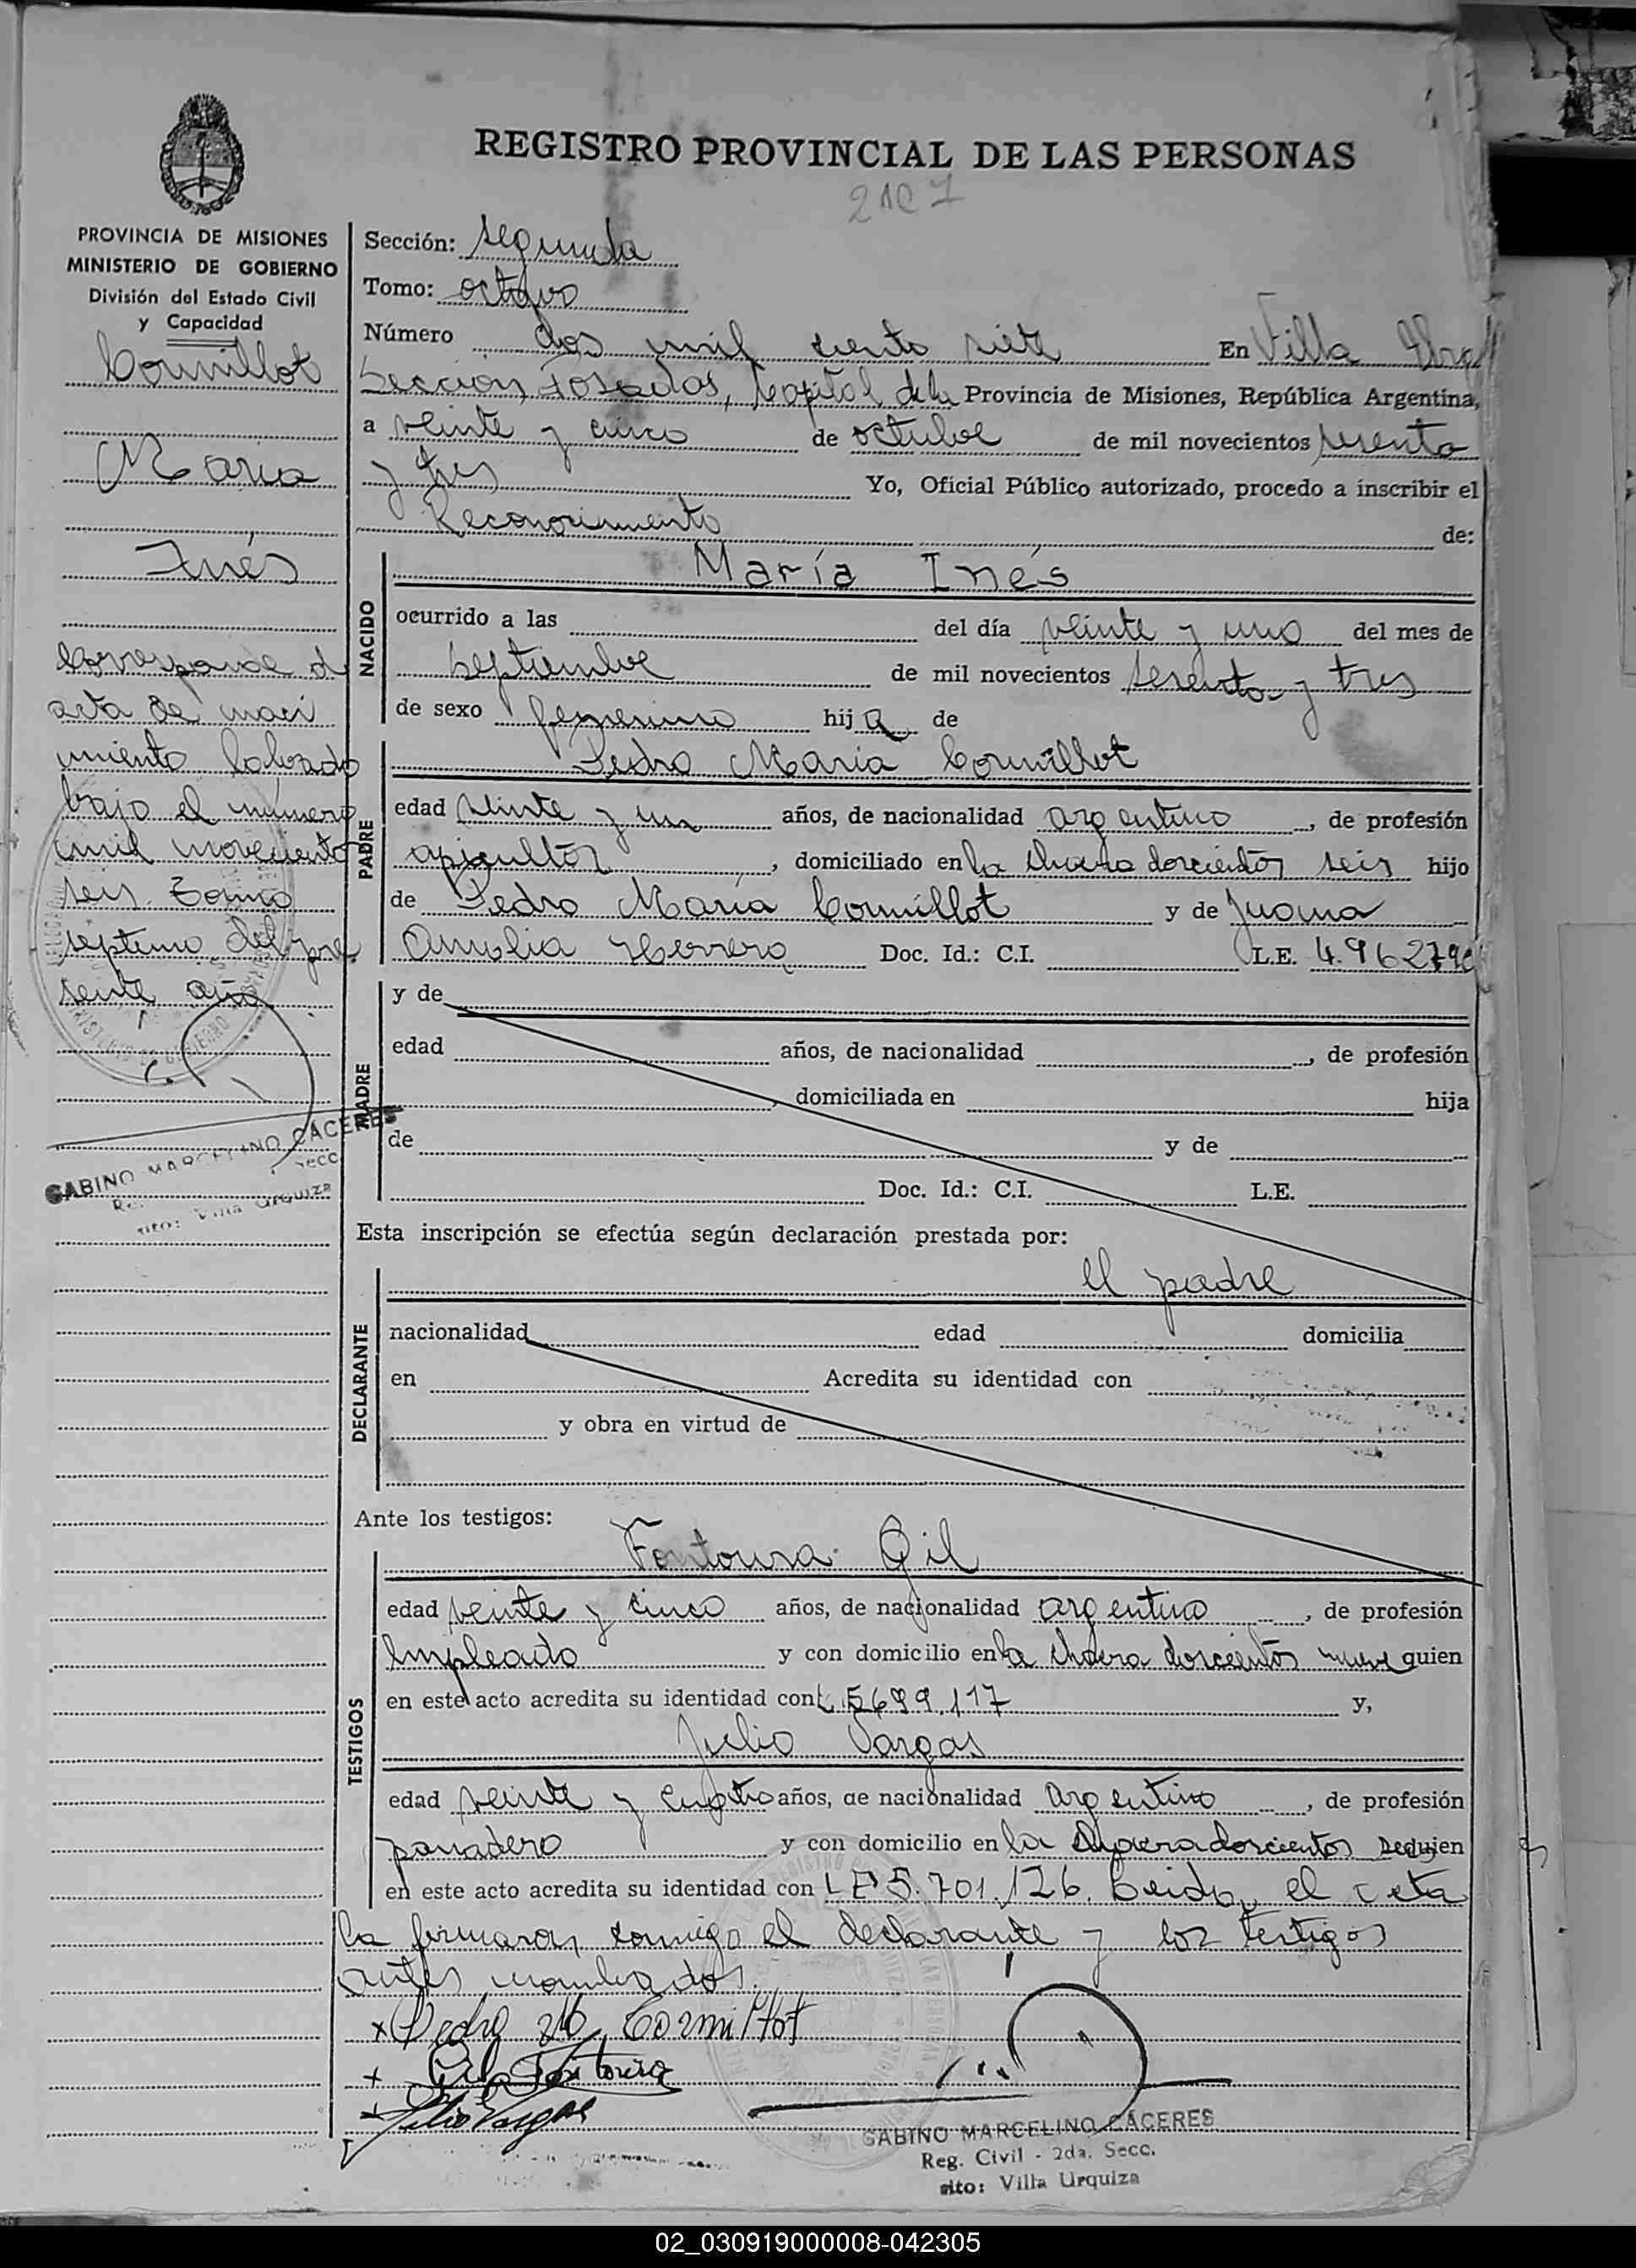 REGISTRO PROVINCIAL DE LAS PERSONAS
2107
PROVINCIA DE MISIONES
MINISTERIO DE GOBIERNO
División del Estado Civil
y Capacidad
Cormillot
Maria
Inés
Corresponde al
acta de naci
miento labrado
bajo el número
mil novecientos
seis Tomo
septimo del pre
sente año
GABINO MARCELINO CACERES
Secc
sito: Villa Urquiza
Sección: segunda
Tomo: octavo
Número dos mil ciento siete En Villa
Seccion, Posadas, Capital de la Provincia de Misiones, República Argentina,
a veinte y cinco de octubre de mil novecientos sesenta
y tres Yo, Oficial Público autorizado, procedo a inscribir el
Reconocimiento de:
NACIDO
María Inés
ocurrido a las del día veinte y uno del mes de
septiembre de mil novecientos sesenta y tres
de sexo femenino hija de
PADRE
Pedro Maria Cormillot
edad veinte y un años, de nacionalidad argentino, de profesión
apicultor, domiciliado en la chacra doscientos seis hijo
de Pedro María Cormillot y de Juana
Amelia Herrera Doc. Id.: C.I. L.E. 4.962790
MADRE
y de
edad años, de nacionalidad, de profesión
, domiciliada en hija
de y de
Doc. Id.: C.I. L.E.
Esta inscripción se efectúa según declaración prestada por:
el padre
DECLARANTE
nacionalidad edad domicilia
en Acredita su identidad con
y obra en virtud de
Ante los testigos:
TESTIGOS
Fontoura Gil
edad veinte y cinco años, de nacionalidad argentino, de profesión
Empleado y con domicilio en la chacra doscientos nueve quien
en este acto acredita su identidad con 5699.117 y,
Julio Vargas
edad veinte y cuatro años, de nacionalidad argentino, de profesión
panadero y con domicilio en la chacra doscientos quien
en este acto acredita su identidad con LE 5.701.126. Leida el acta
la firmaron conmigo el declarante y los testigos
antes nombrados.
x Pedro Ma. Cormillot
+ Gil Fontoura
+ Julio Vargas
GABINO MARCELINO CACERES
Reg. Civil - 2da. Secc.
sito: Villa Urquiza
02_030919000008-042305